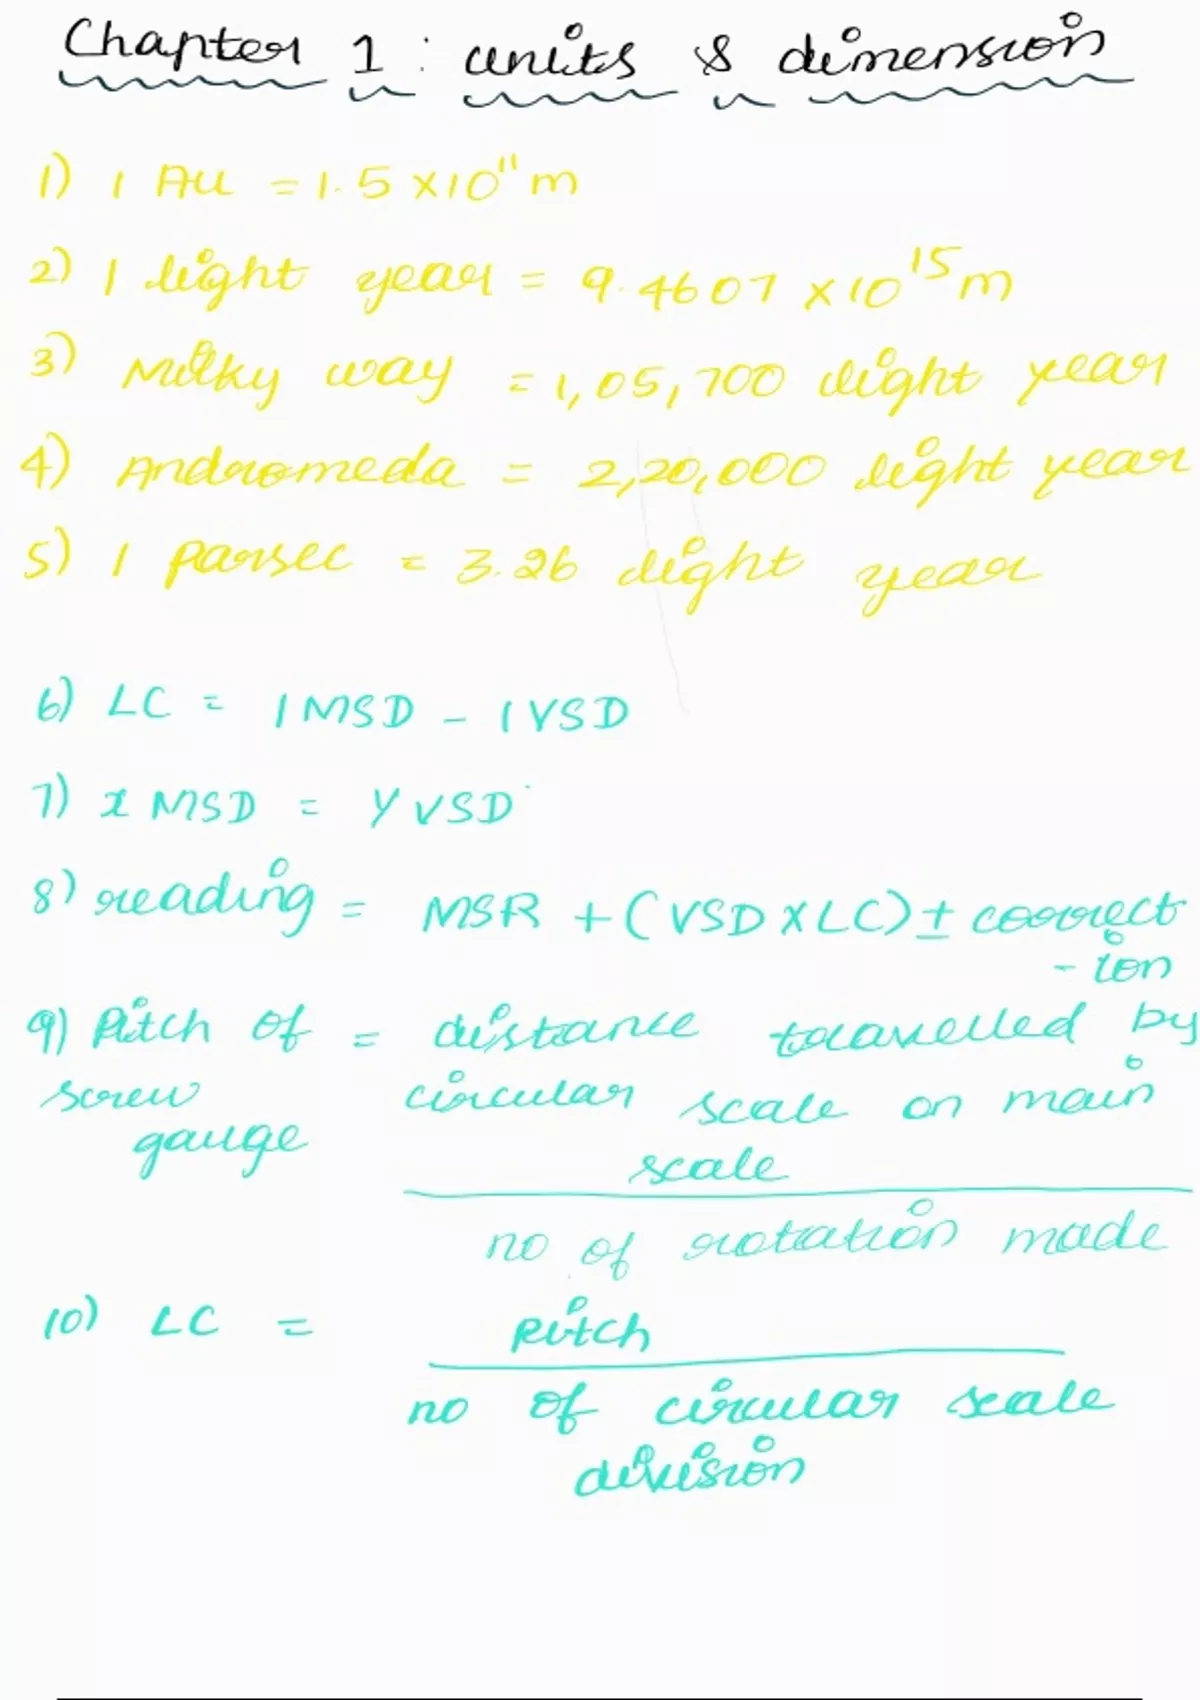 Chapter 1 : units & dimension
1) 1 AU = 1.5 ×10¹¹ m
2) 1 light year = 9.4607 ×10¹⁵ m
3) Milky way = 1,05,700 light year
4) Andromeda = 2,20,000 light year
5) 1 Parsec = 3.26 light year
6) LC = 1 MSD - 1 VSD
7) x MSD = Y VSD
8) reading = MSR + (VSD × LC) ± correct
- ion
9) Pitch of = distance travelled by
screw circular scale on main
gauge scale
no of rotation made
10) LC = Pitch
no of circular scale
division